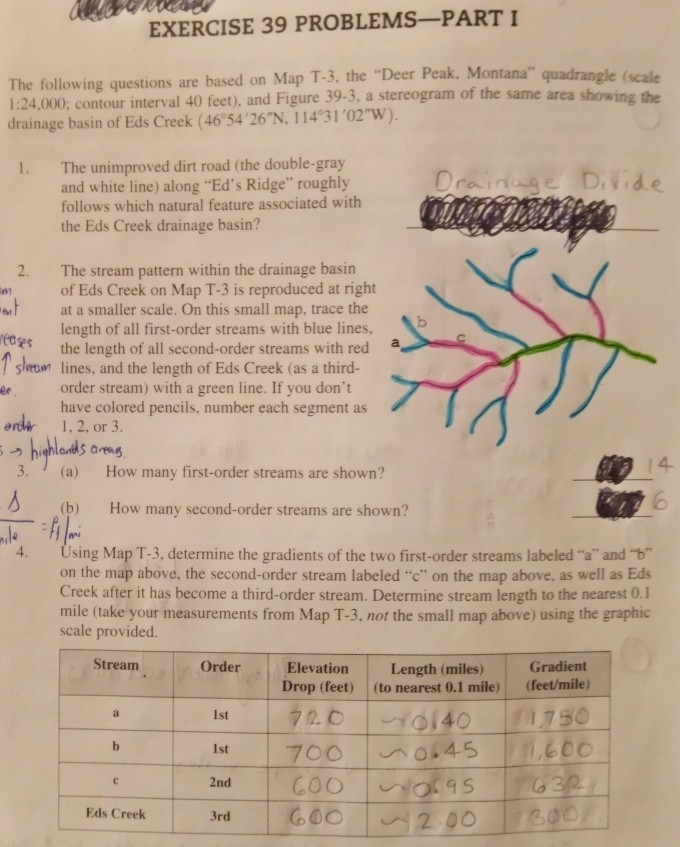 EXERCISE 39 PROBLEMS—PART I
The following questions are based on Map T-3, the “Deer Peak, Montana” quadrangle (scale
1:24,000; contour interval 40 feet), and Figure 39-3, a stereogram of the same area showing the
drainage basin of Eds Creek (46°54'26"N, 114°31'02"W).
1. The unimproved dirt road (the double-gray
and white line) along “Ed’s Ridge” roughly
follows which natural feature associated with
the Eds Creek drainage basin?
Drainage Divide
2. The stream pattern within the drainage basin
of Eds Creek on Map T-3 is reproduced at right
at a smaller scale. On this small map, trace the
length of all first-order streams with blue lines,
the length of all second-order streams with red
lines, and the length of Eds Creek (as a third-
order stream) with a green line. If you don’t
have colored pencils, number each segment as
1, 2, or 3.
b
a
c
↑ stream
order
→ highlands areas
3. (a) How many first-order streams are shown?
14
(b) How many second-order streams are shown?
6
= ft/mi
4. Using Map T-3, determine the gradients of the two first-order streams labeled “a” and “b”
on the map above, the second-order stream labeled “c” on the map above, as well as Eds
Creek after it has become a third-order stream. Determine stream length to the nearest 0.1
mile (take your measurements from Map T-3, not the small map above) using the graphic
scale provided.
Stream Order Elevation Drop (feet) Length (miles) (to nearest 0.1 mile) Gradient (feet/mile)
a 1st 720 ~0.40 1,750
b 1st 700 ~0.45 1,600
c 2nd 600 ~0.95 632
Eds Creek 3rd 600 ~2.00 300